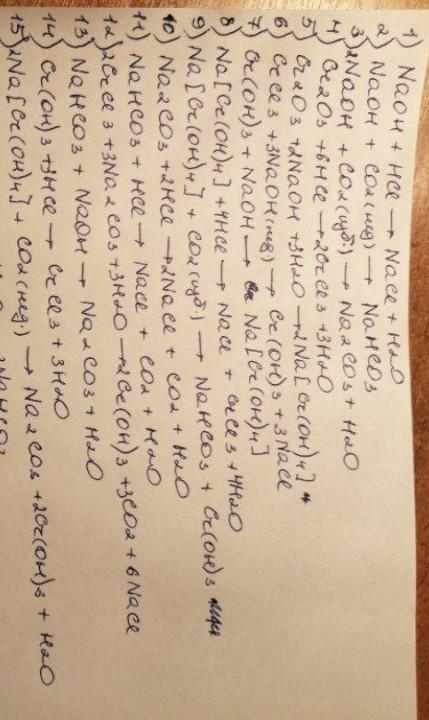 1) NaOH + HCl → NaCl + H2O
2) NaOH + CO2 (нед) → NaHCO3
3) 2NaOH + CO2 (изб.) → Na2CO3 + H2O
4) Cr2O3 + 6HCl → 2CrCl3 + 3H2O
5) Cr2O3 + 2NaOH + 3H2O → 2Na[Cr(OH)4]
6) CrCl3 + 3NaOH (нед) → Cr(OH)3 + 3NaCl
7) Cr(OH)3 + NaOH → Na[Cr(OH)4]
8) Na[Cr(OH)4] + 4HCl → NaCl + CrCl3 + 4H2O
9) Na[Cr(OH)4] + CO2 (изб) → NaHCO3 + Cr(OH)3
10) Na2CO3 + 2HCl → 2NaCl + CO2 + H2O
11) NaHCO3 + HCl → NaCl + CO2 + H2O
12) 2CrCl3 + 3Na2CO3 + 3H2O → 2Cr(OH)3 + 3CO2 + 6NaCl
13) NaHCO3 + NaOH → Na2CO3 + H2O
14) Cr(OH)3 + 3HCl → CrCl3 + 3H2O
15) 2Na[Cr(OH)4] + CO2 (нед.) → Na2CO3 + 2Cr(OH)3 + H2O